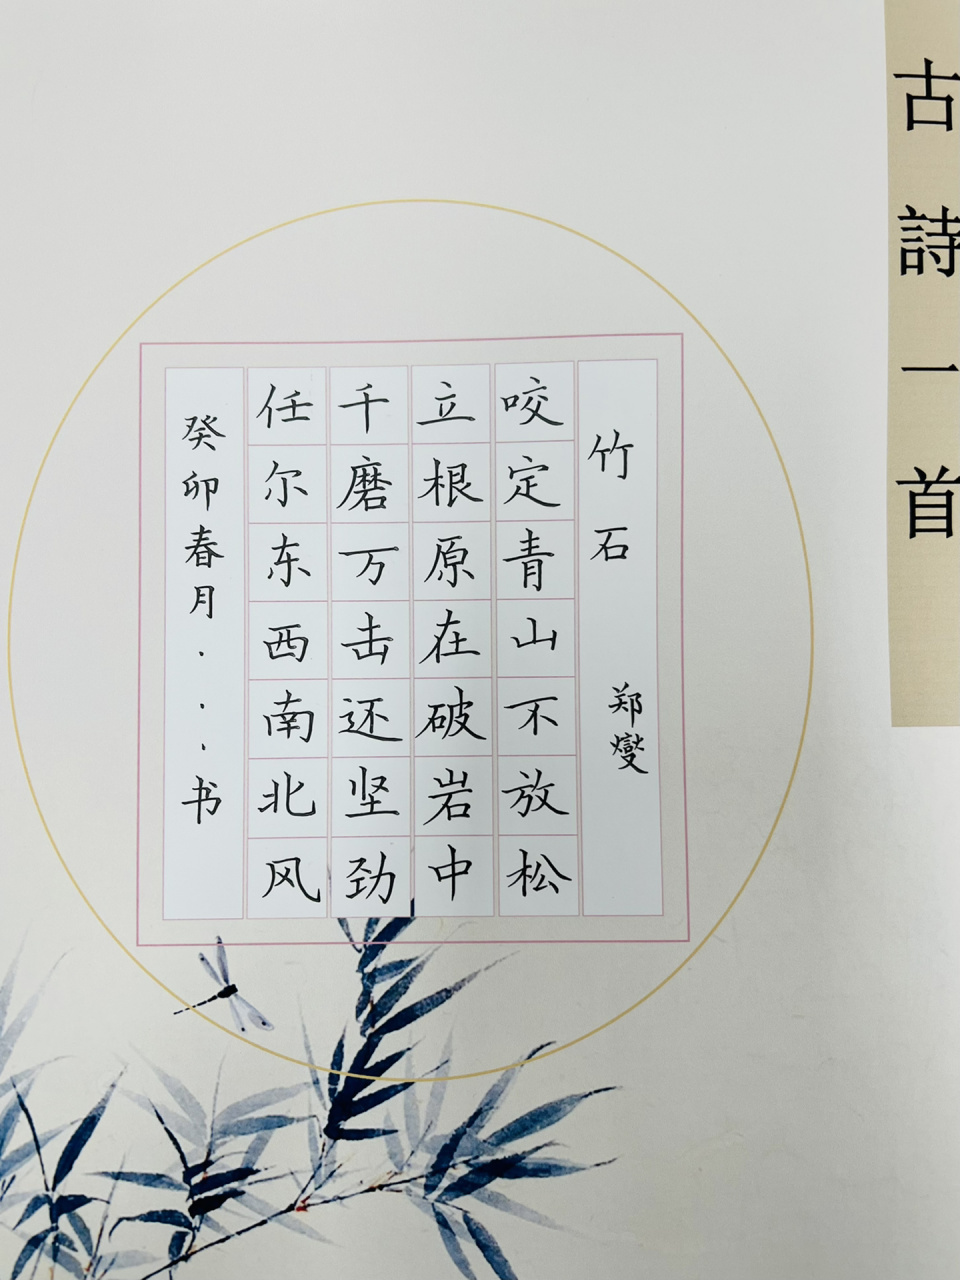 古詩一首
竹石 郑燮
咬定青山不放松
立根原在破岩中
千磨万击还坚劲
任尔东西南北风
癸卯春月...书